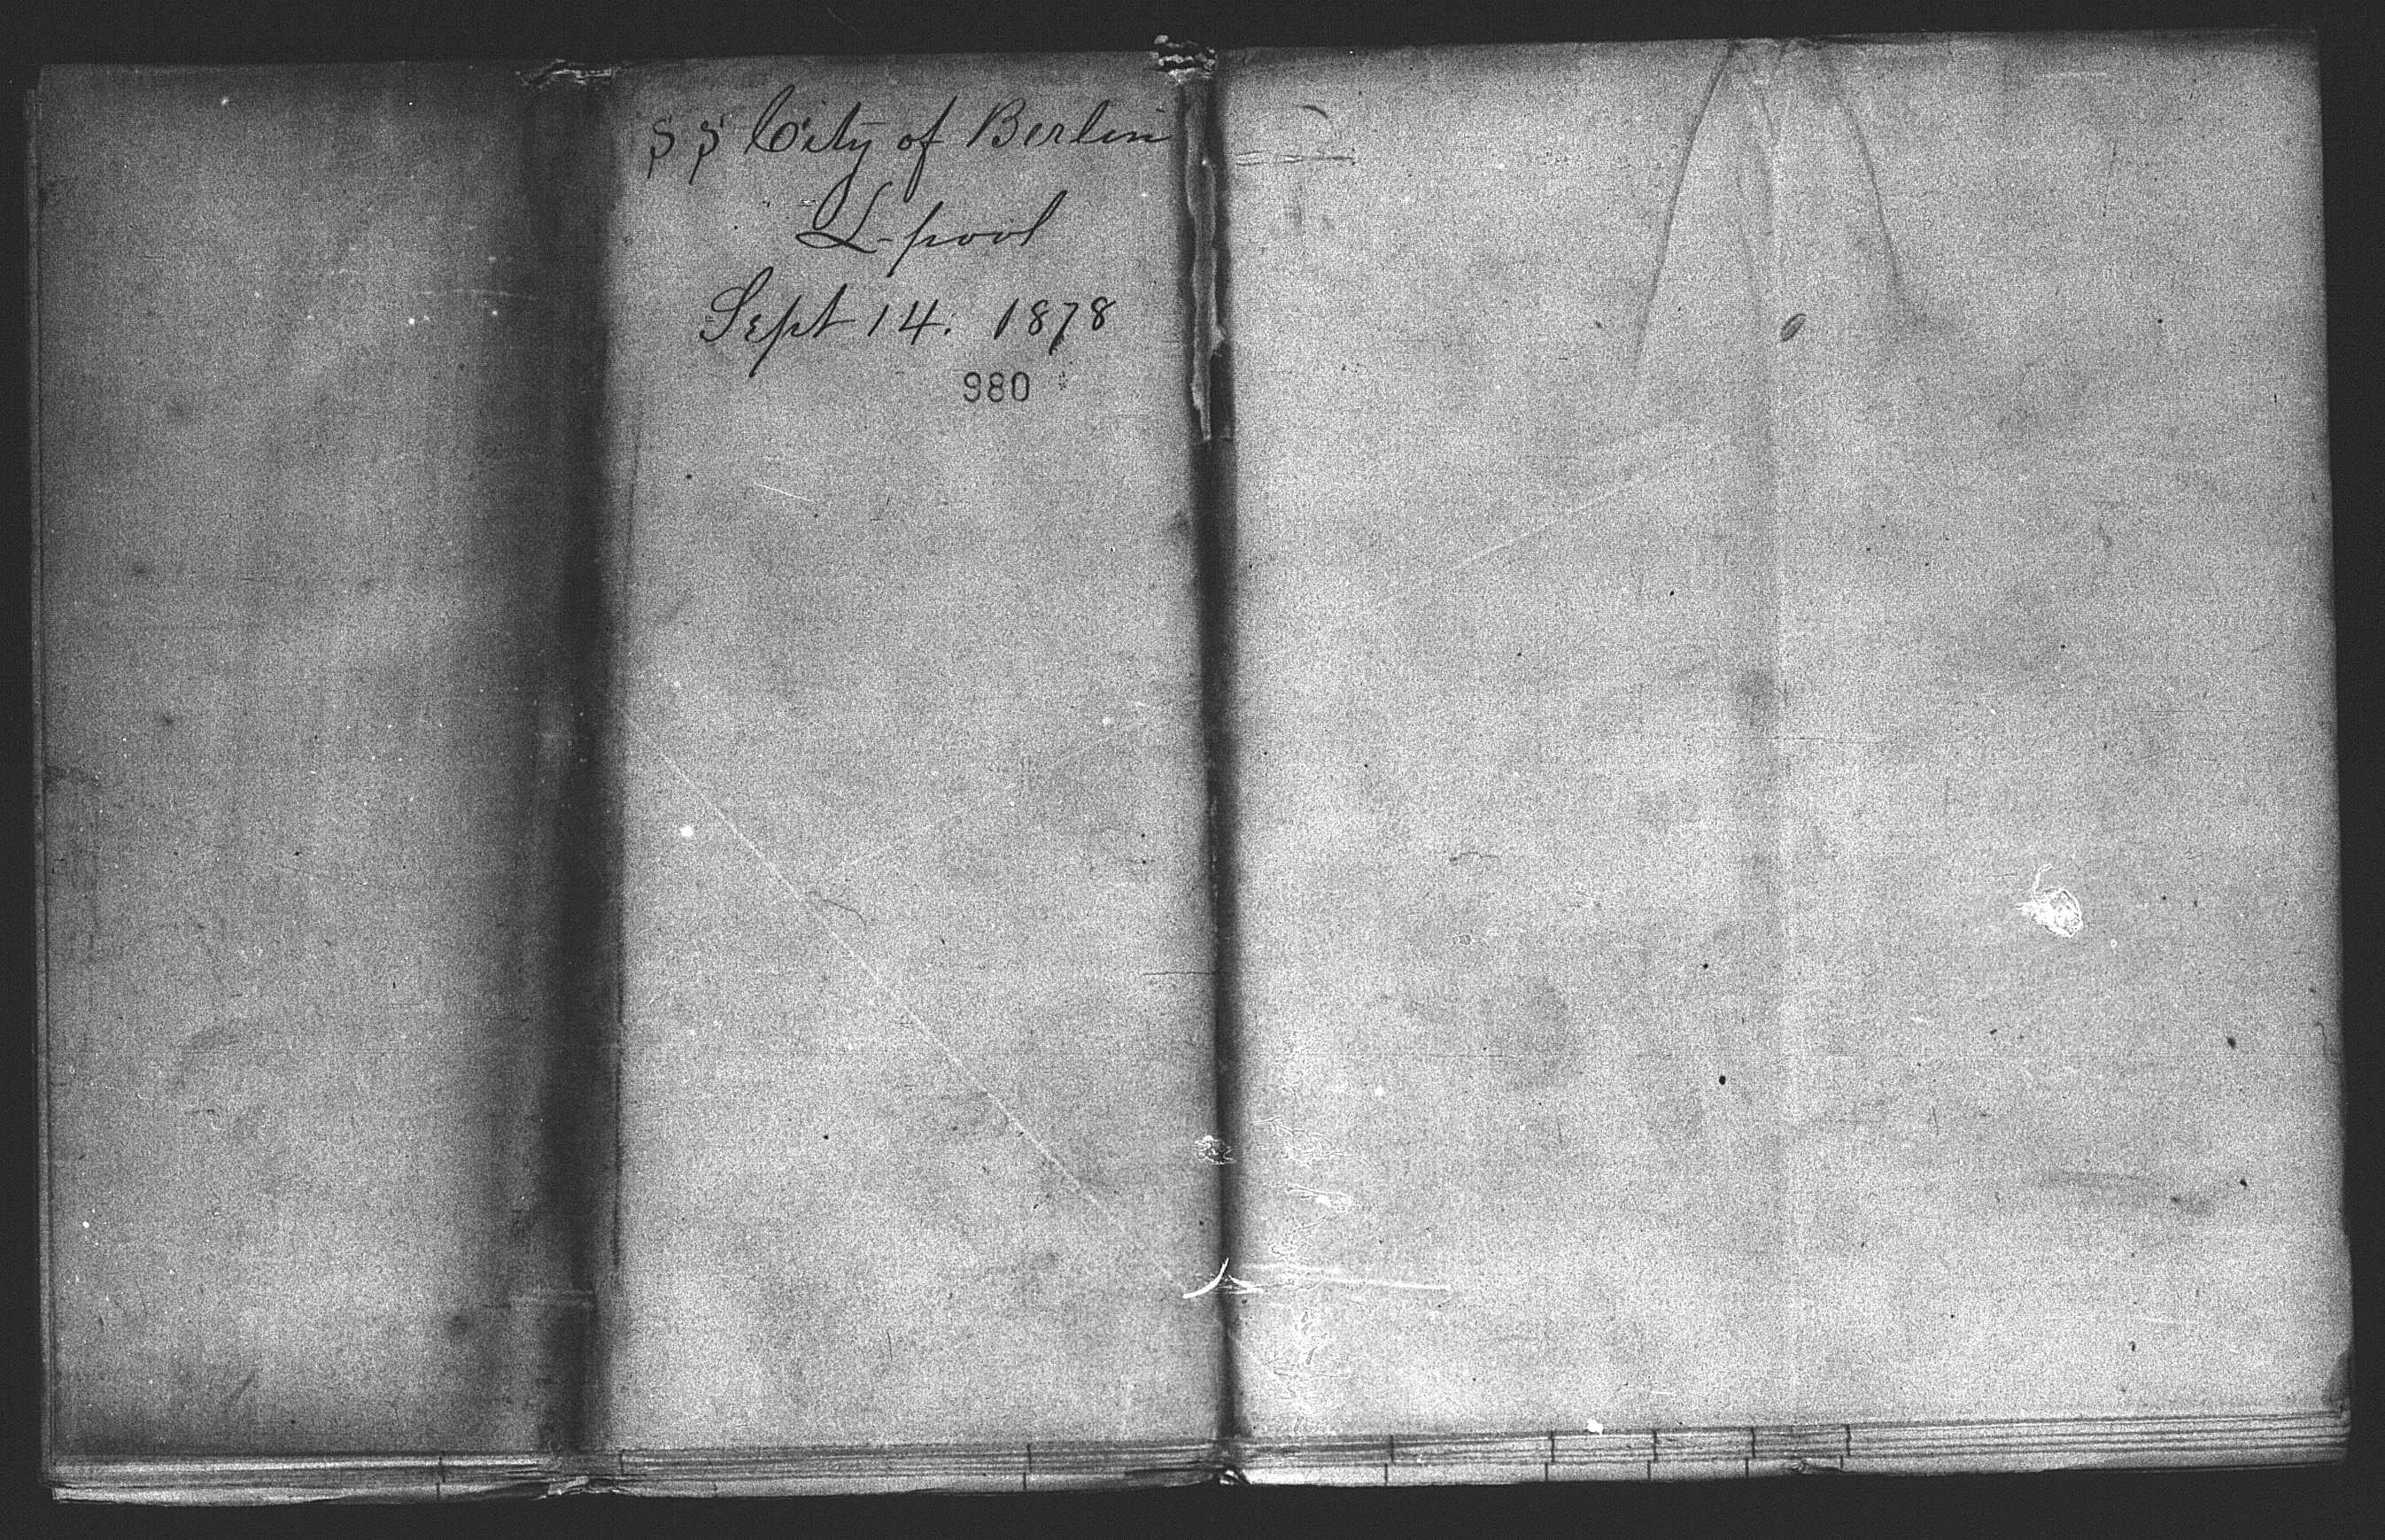 SS City of Berlin
L-pool
Sept 14. 1878
980